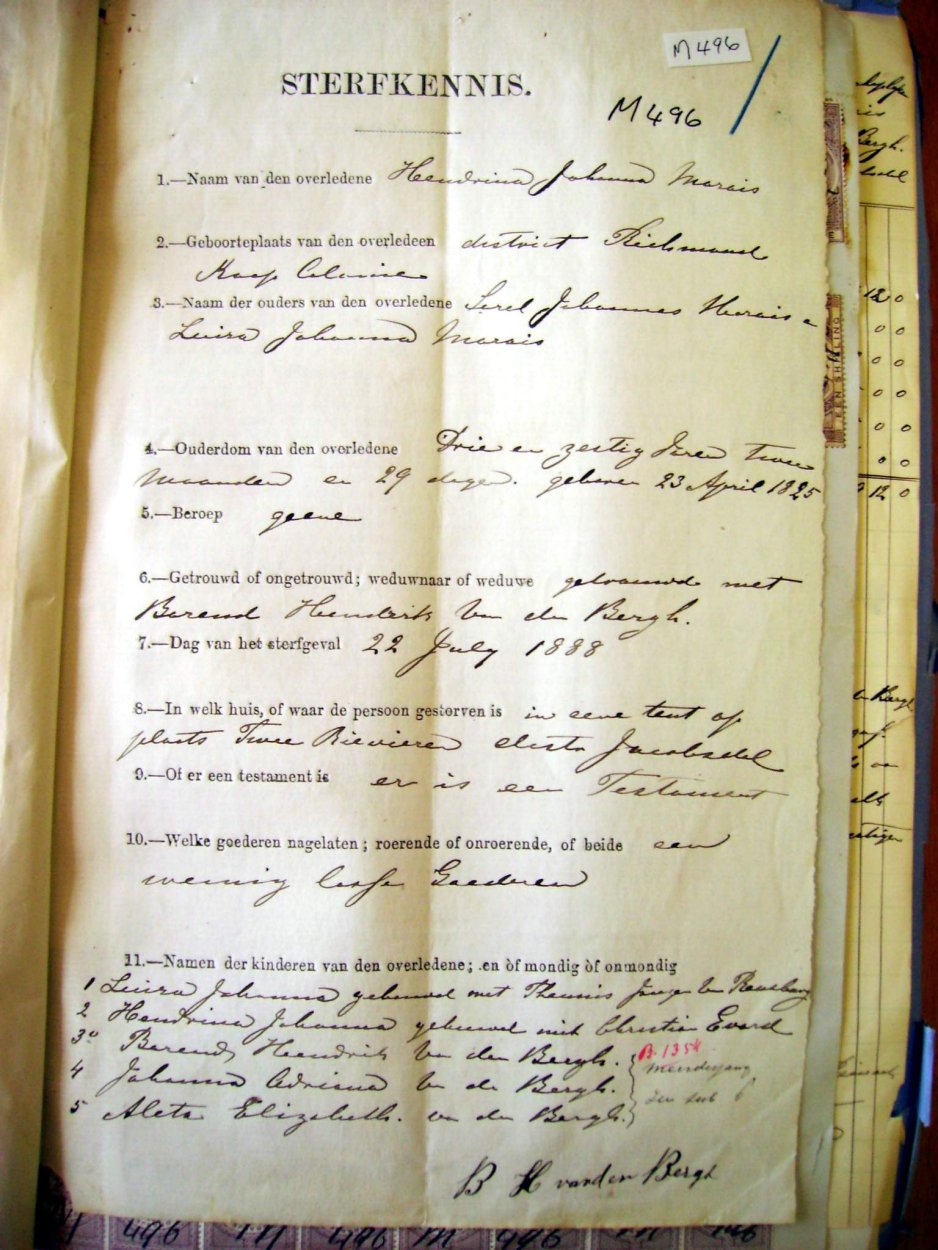 M496
STERFKENNIS.
M496
1.—Naam van den overledene Hendrina Johanna Marais
2.—Geboorteplaats van den overledeen district Richmond
Kaap Colonie
3.—Naam der ouders van den overledene Johannes Marais
Johanna Marais
4.—Ouderdom van den overledene Drie en zestig Jaren twee
maanden en 29 dagen. geboren 23 April 1825
5.—Beroep geene
6.—Getrouwd of ongetrouwd; weduwnaar of weduwe getrouwd met
Barend Hendrik Van den Bergh.
7.—Dag van het sterfgeval 22 July 1888
8.—In welk huis, of waar de persoon gestorven is in eene tent op
plaats Twee Rievieren distr Jacobsdal
9.—Of er een testament is er is een Testament
10.—Welke goederen nagelaten; roerende of onroerende, of beide een
weinig losse Goederen
11.—Namen der kinderen van den overledene; en òf mondig òf onmondig
1 Johanna gehuwd met Theunis van Rensburg
2 Hendrina Johanna gehuwd met Christian Evard
3e Barend Hendrik Van den Bergh.
B.1354
4 Johanna Adriana Van de Bergh.
5 Aleta Elizabeth. van den Bergh.
B H van den Bergh
EEN SHILLING
12 0
0 0
0 0
0 0
0 0
0
12 0
496 M 496 M 496